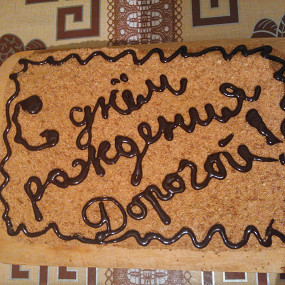 С днём
рождения
Дорогой!